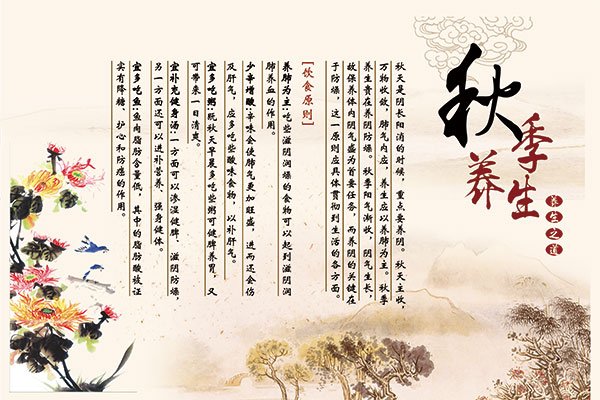 秋季养生
养生之道
秋天是阴长阳消的时候，重点要养阴。秋天主收，
万物收敛，肺气内应，养生应以养肺为主。秋季
养生贵在养阴防燥。秋季阳气渐收，阴气生长，
故保养体内阴气盛为首要任务，而养阴的关键在
于防燥，这一原则应具体贯彻到生活的各方面。
【饮食原则】
养肺为主:吃些滋阴润燥的食物可以起到滋阴润
肺养血的作用。
少辛增酸:辛味会使肺气更加旺盛，进而还会伤
及肝气，应多吃些酸味食物，以补肝气。
宜多吃粥:既秋天早晨多吃些粥可健脾养胃，又
可带来一日清爽。
宜补充健身汤:一方面可以渗湿健脾、滋阴防燥，
另一方面还可以进补营养、强身健体。
宜多吃鱼:鱼肉脂肪含量低，其中的脂肪酸被证
实有降糖、护心和防癌的作用。